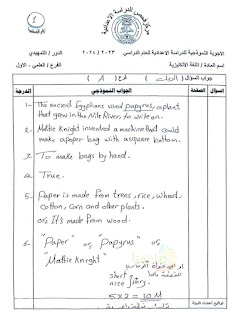 مركز فحص الدراسة الإعدادية
الاجوبة النموذجية للدراسة الاعدادية للعام الدراسي ٢٠٢٣ / ٢٠٢٤
الدور / التمهيدي
اسم المادة / اللغة الانكليزية
الفرع / العلمي - الاول
جواب السؤال ( ) فرع ( A )
الدرجة
الجواب النموذجي
الصفحة
السؤال
1- The ancient Egyptians used papyrus, a plant
that grew in the Nile River, to write on.
2- Mattie Knight invented a machine that could
make a paper bag with a square bottom.
3. To make bags by hand.
4. True.
5. Paper is made from trees, rice, wheat,
cotton, corn and other plants.
or, It's made from wood.
6. "Paper" or "Papyrus" or
"Mattie Knight"
short
nice story.
5 x 2 = 10 M